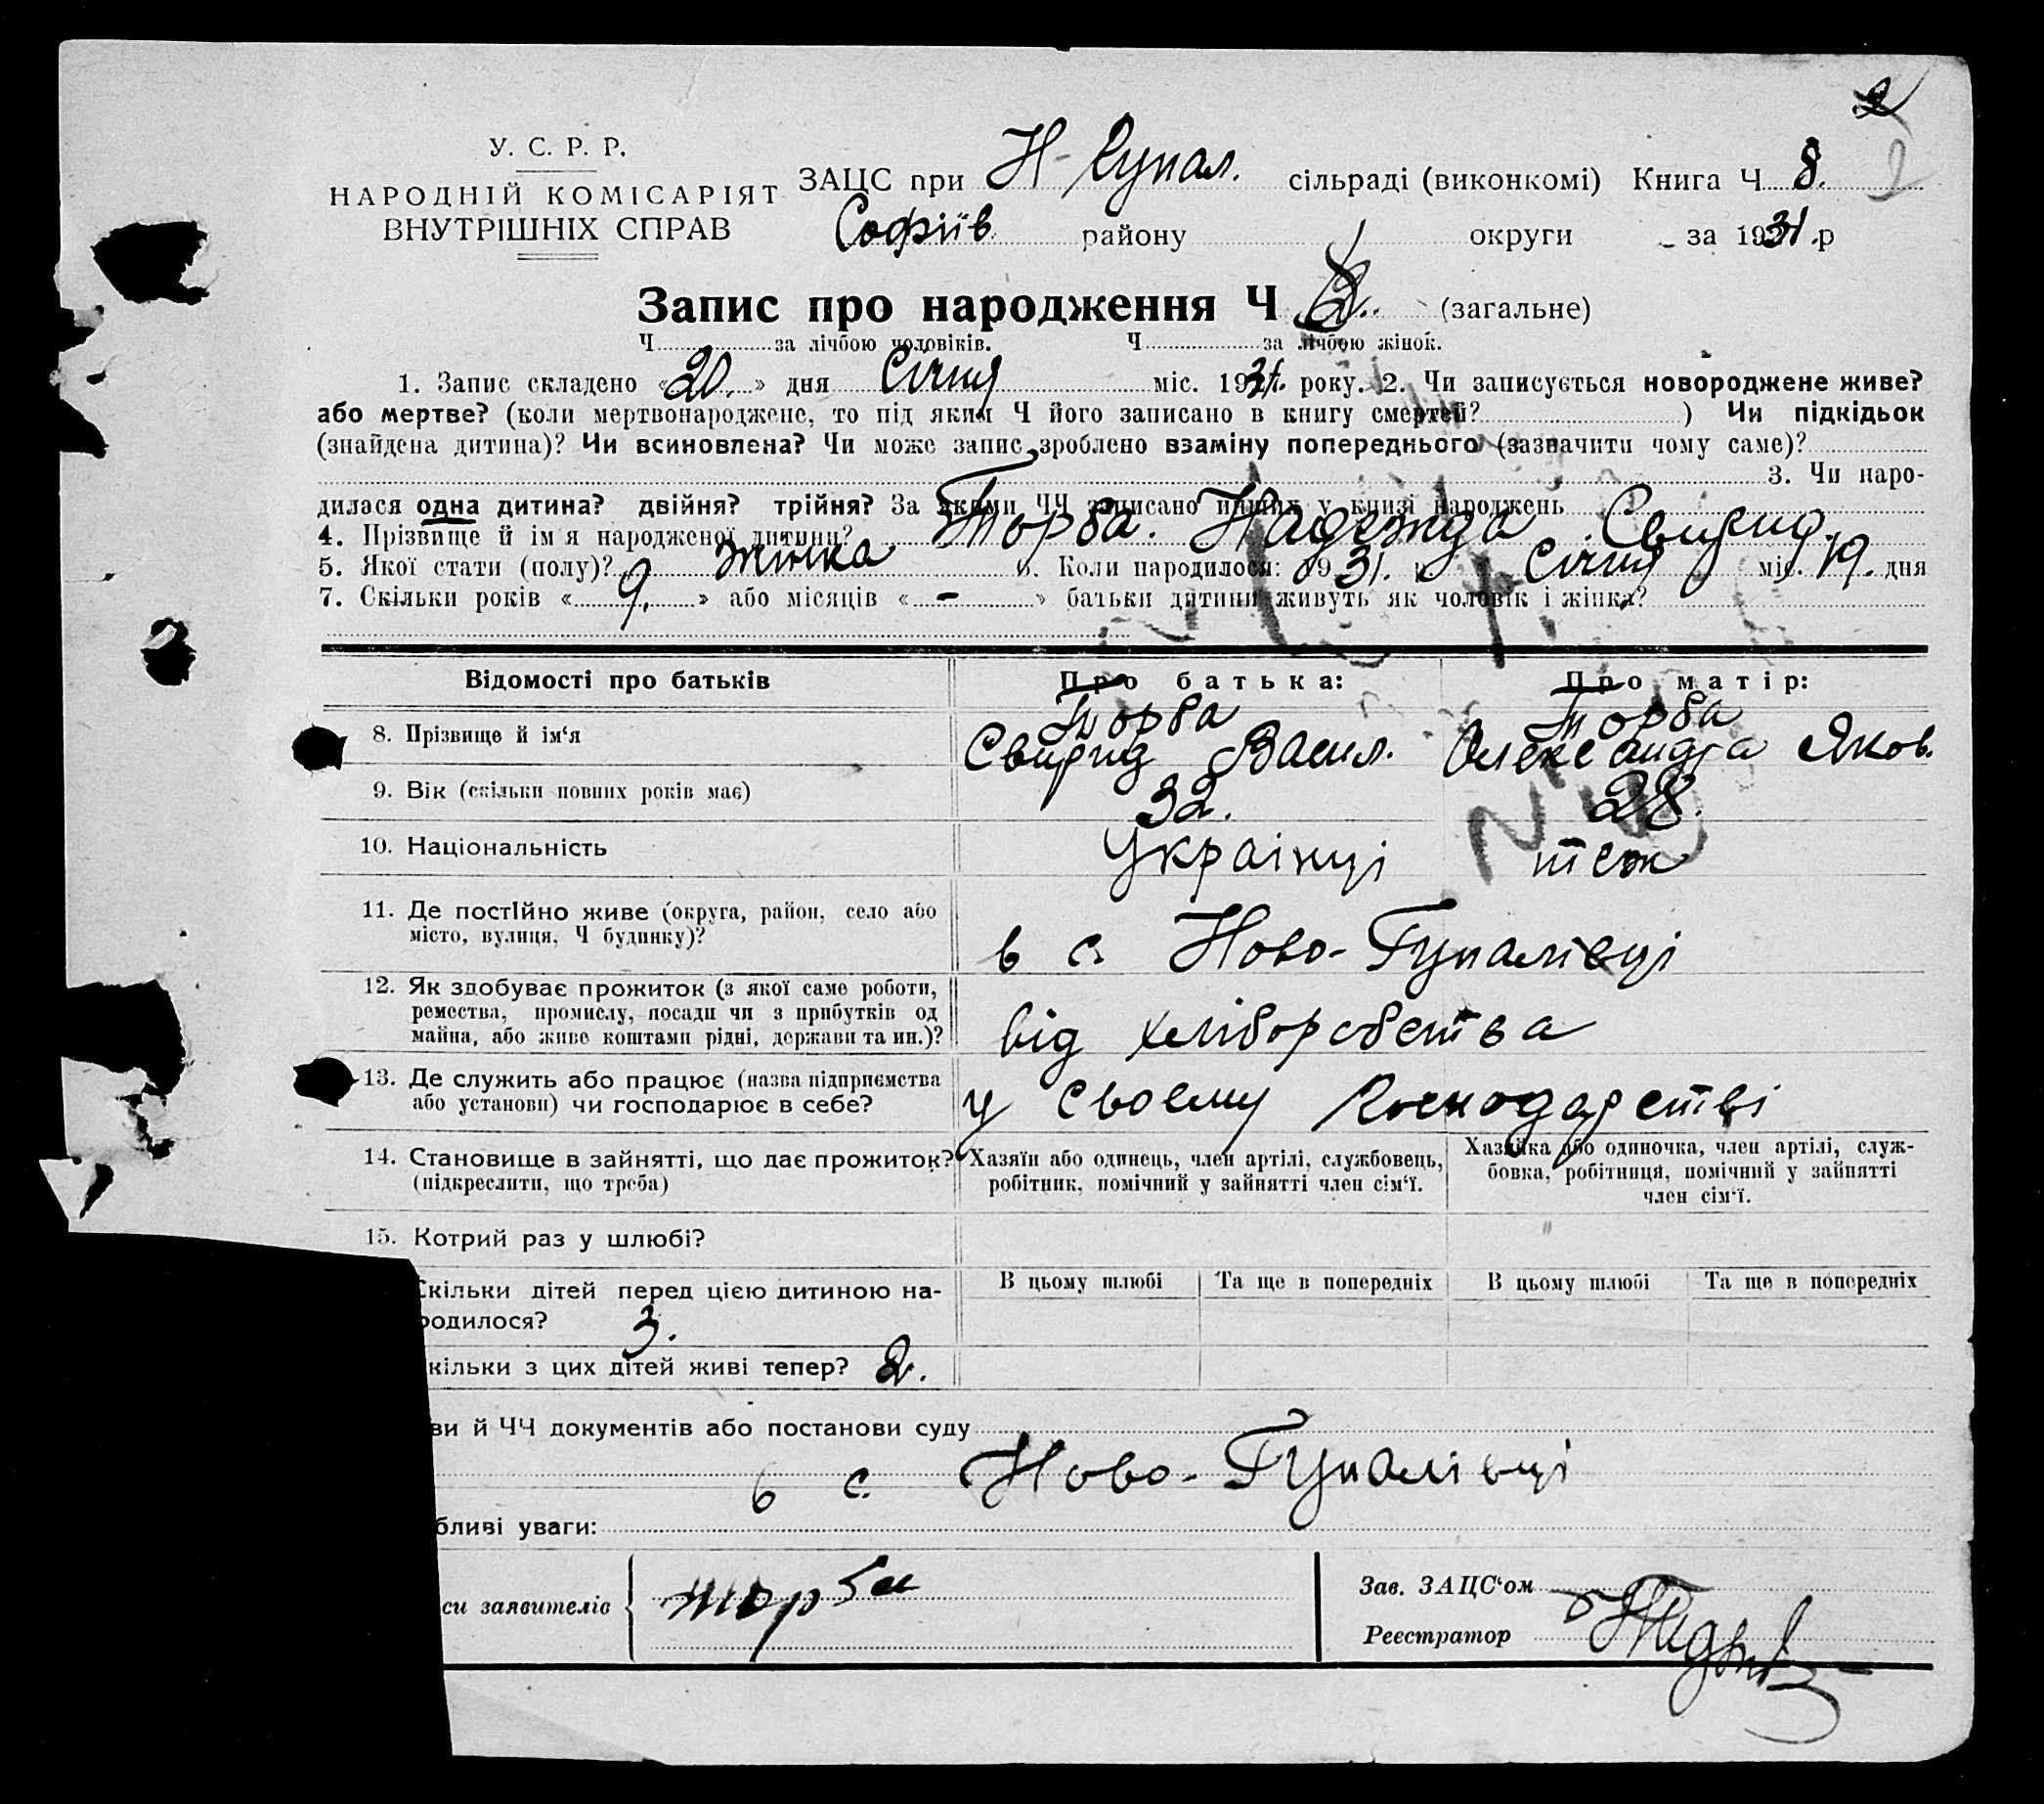 2
У. С. Р. Р.
НАРОДНІЙ КОМІСАРІЯТ
ВНУТРІШНІХ СПРАВ
ЗАЦС при Н-Гупал. сільраді (виконкомі) Книга Ч 8.
Софіїв району округи за 1931.р
Запис про народження Ч 2. (загальне)
Ч за лічбою чоловіків. Ч за лічбою жінок.
1. Запис складено «20.» дня Січня міс. 1931. року. 2. Чи записується новороджене живе?
або мертве? (коли мертвонароджене, то під яким Ч його записано в книгу смертей? ) Чи підкідьок
(знайдена дитина)? Чи всиновлена? Чи може запис зроблено взаміну попереднього (зазначити чому саме)?
3. Чи наро-
дилася одна дитина? двійня? трійня? За якими ЧЧ записано инших у книзі народжень
4. Прізвище й ім'я народженої дитини? Торба. Надежда Свирид.
5. Якої стати (полу)? жінка 6. Коли народилося: 1931. р Січня міс. 19. дня
7. Скільки років «9.» або місяців «-» батьки дитини живуть як чоловік і жінка?
Відомості про батьків Про батька: Про матір:
8. Прізвище й ім'я
Торба Торба
Свирид Васил. Олександра Яков.
9. Вік (скільки повних років має) 32. 28.
10. Національність Українці теж
11. Де постійно живе (округа, район, село або
місто, вулиця, Ч будинку)?
в с. Ново-Гупалівці
12. Як здобуває прожиток (з якої саме роботи,
ремества, промислу, посади чи з прибутків од
майна, або живе коштами рідні, держави та ин.)?
від хліборобства
13. Де служить або працює (назва підприємства
або установи) чи господарює в себе?
у своєму господарстві
14. Становище в зайнятті, що дає прожиток?
(підкреслити, що треба)
Хазяїн або одинець, член артілі, службовець,
робітник, помічний у зайнятті член сім'ї.
Хазяйка або одиночка, член артілі, служ-
бовка, робітниця, помічний у зайнятті
член сім'ї.
15. Котрий раз у шлюбі?
Скільки дітей перед цією дитиною на-
родилося? 3.
В цьому шлюбі Та ще в попередніх В цьому шлюбі Та ще в попередніх
кільки з цих дітей живі тепер? 2.
ви й ЧЧ документів або постанови суду
в с. Ново-Гупалівці
бливі уваги:
си заявителів Торба
Зав. ЗАЦС'ом
Реєстратор